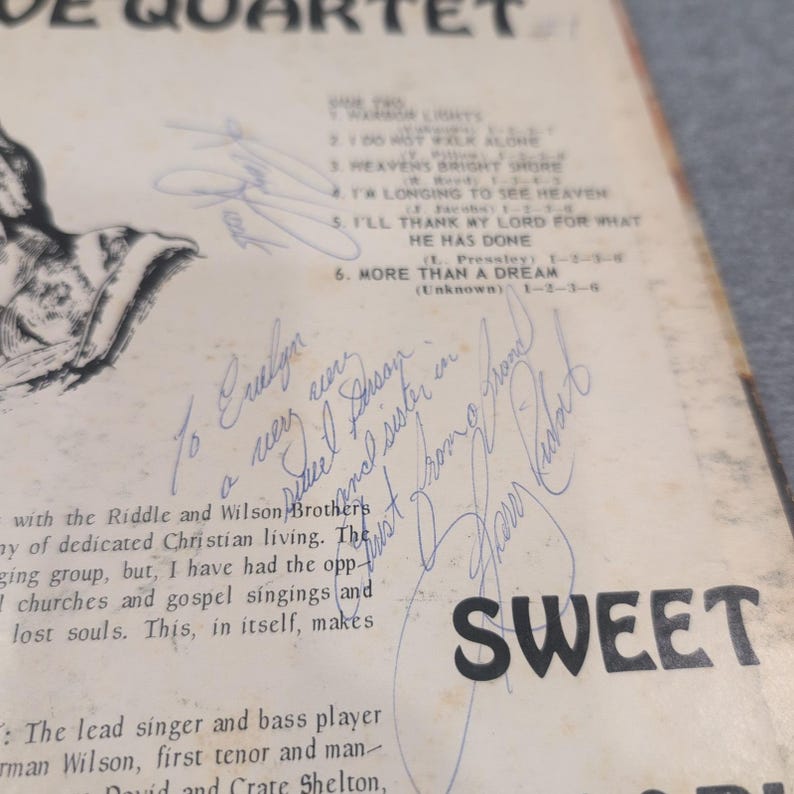 QUARTET
SIDE TWO
1. WARNOR LIGHTS
(Unknown) 1-2-
2. I DO NOT WALK ALONE
3. HEAVENS BRIGHT SHORE
4. I'M LONGING TO SEE HEAVEN
(J. Jacobs) 1-2-3-6
5. I'LL THANK MY LORD FOR WHAT
HE HAS DONE
(L. Pressley) 1-2-3-6
6. MORE THAN A DREAM
(Unknown) 1-2-3-6
To Evelyn
a very very
sweet person
and sister in
Christ from a friend
Harry
with the Riddle and Wilson Brothers
of dedicated Christian living. The
group, but, I have had the opp-
churches and gospel singings and
lost souls. This, in itself, makes
SWEET
: The lead singer and bass player
Wilson, first tenor and man-
David and Crate Shelton,